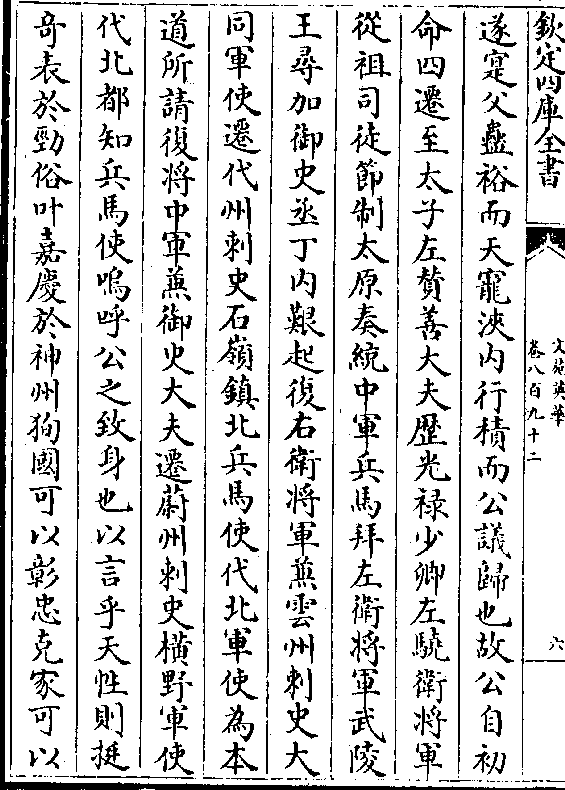 欽定四庫全書
文苑英華
卷八百九十二
六
遂寔父蠱裕而天寵浹内行積而公議歸也故公自初
命四遷至太子左贊善大夫歴光禄少卿左驍衛將軍
從祖司徒節制太原奏統中軍兵馬拜左衛將軍武陵
王尋加御史丞丁内艱起復右衛將軍兼雲州刺史大
同軍使遷代州刺史石嶺鎮北兵馬使代北軍使為本
道所請復將中軍兼御史大夫遷蔚州刺史横野軍使
代北都知兵馬使嗚呼公之致身也以言乎天性則挺
竒表於勁俗叶嘉慶於神州狥國可以彰忠克家可以